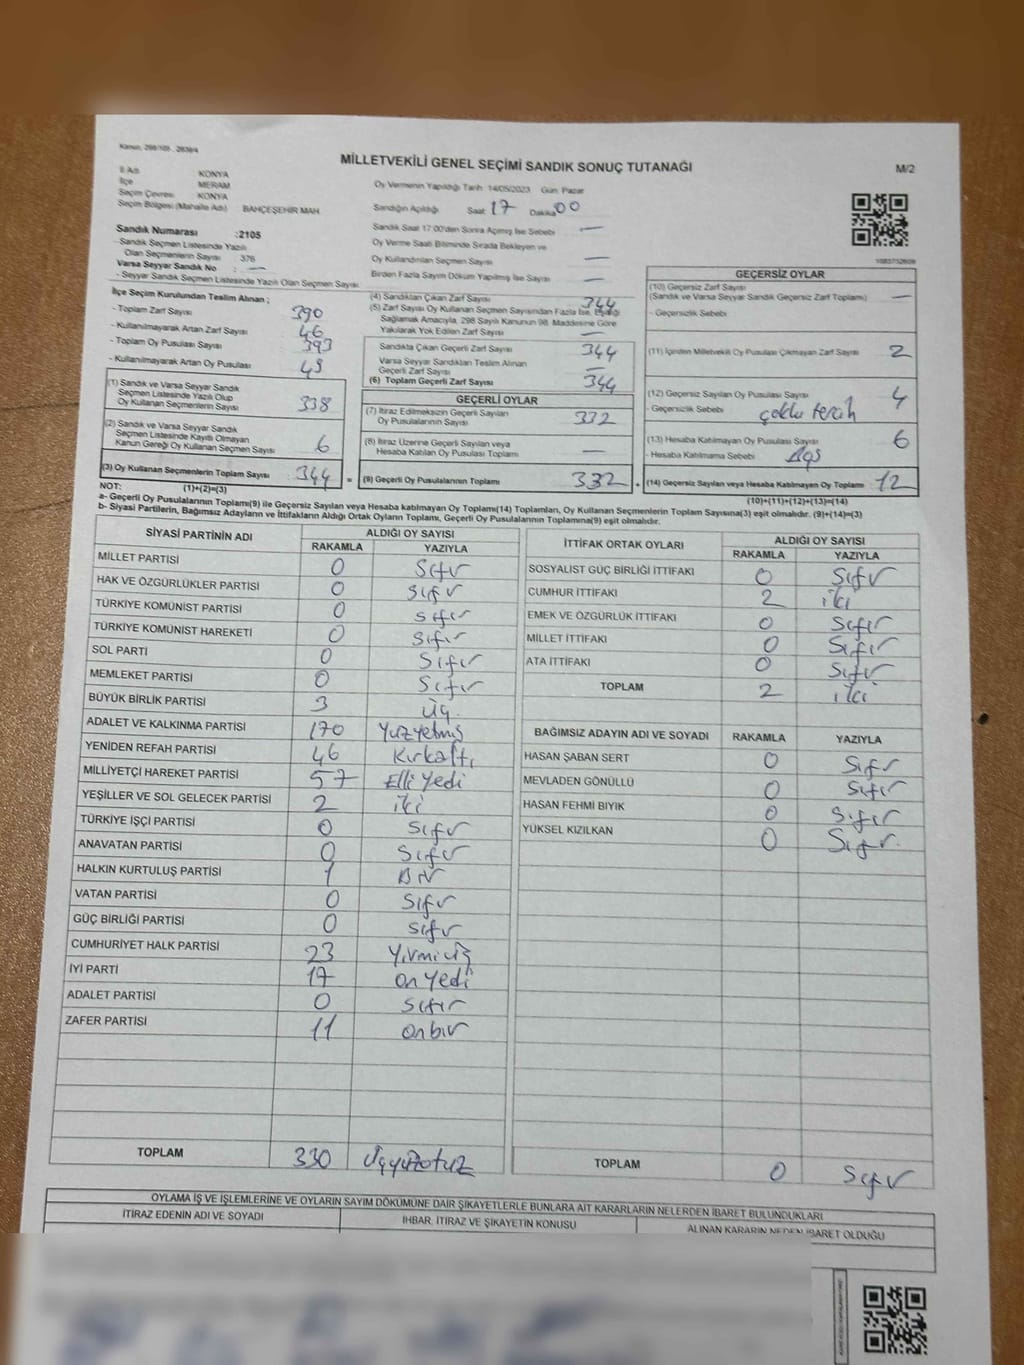 Kanun; 298/105 . 2839/4
MİLLETVEKİLİ GENEL SEÇİMİ SANDIK SONUÇ TUTANAĞI
M/2
İl Adı KONYA
İlçe MERAM
Seçim Çevresi KONYA
Seçim Bölgesi (Mahalle Adı) BAHÇEŞEHİR MAH.
Oy Vermenin Yapıldığı Tarih 14/05/2023 Gün: Pazar
Sandığın Açıldığı Saat: 17 Dakika 00
Sandık Saat 17:00'den Sonra Açılmış İse Sebebi —
Oy Verme Saati Bitiminde Sırada Bekleyen ve
Oy Kullandırılan Seçmen Sayısı —
Birden Fazla Sayım Döküm Yapılmış İse Sayısı —
Sandık Numarası :2105
- Sandık Seçmen Listesinde Yazılı
Olan Seçmenlerin Sayısı 376
Varsa Seyyar Sandık No : —
- Seyyar Sandık Seçmen Listesinde Yazılı Olan Seçmen Sayısı
İlçe Seçim Kurulundan Teslim Alınan ;
- Toplam Zarf Sayısı 390
- Kullanılmayarak Artan Zarf Sayısı 46
- Toplam Oy Pusulası Sayısı 393
- Kullanılmayarak Artan Oy Pusulası 49
(1) Sandık ve Varsa Seyyar Sandık
Seçmen Listesinde Yazılı Olup
Oy Kullanan Seçmenlerin Sayısı 338
(2) Sandık ve Varsa Seyyar Sandık
Seçmen Listesinde Kayıtlı Olmayan
Kanun Gereği Oy Kullanan Seçmen Sayısı 6
(3) Oy Kullanan Seçmenlerin Toplam Sayısı 344
(4) Sandıktan Çıkan Zarf Sayısı 344
(5) Zarf Sayısı Oy Kullanan Seçmen Sayısından Fazla İse, Eşitliği
Sağlamak Amacıyla, 298 Sayılı Kanunun 98. Maddesine Göre
Yakılarak Yok Edilen Zarf Sayısı —
Sandıkta Çıkan Geçerli Zarf Sayısı 344
Varsa Seyyar Sandıktan Teslim Alınan
Geçerli Zarf Sayısı —
(6) Toplam Geçerli Zarf Sayısı 344
GEÇERLİ OYLAR
(7) İtiraz Edilmeksizin Geçerli Sayılan
Oy Pusulalarının Sayısı 332
(8) İtiraz Üzerine Geçerli Sayılan veya
Hesaba Katılan Oy Pusulası Toplamı —
= (9) Geçerli Oy Pusulalarının Toplamı 332 +
1083752609
GEÇERSİZ OYLAR
(10) Geçersiz Zarf Sayısı
(Sandık ve Varsa Seyyar Sandık Geçersiz Zarf Toplamı) —
- Geçersizlik Sebebi
(11) İçinden Milletvekili Oy Pusulası Çıkmayan Zarf Sayısı 2
(12) Geçersiz Sayılan Oy Pusulası Sayısı 4
- Geçersizlik Sebebi çoklu tercih
(13) Hesaba Katılmayan Oy Pusulası Sayısı 6
- Hesaba Katılmama Sebebi
(14) Geçersiz Sayılan veya Hesaba Katılmayan Oy Toplamı 12
NOT: (1)+(2)=(3)
(10)+(11)+(12)+(13)=(14)
a- Geçerli Oy Pusulalarının Toplamı(9) ile Geçersiz Sayılan veya Hesaba Katılmayan Oy Toplamı(14) Toplamları, Oy Kullanan Seçmenlerin Toplam Sayısına(3) eşit olmalıdır. (9)+(14)=(3)
b- Siyasi Partilerin, Bağımsız Adayların ve İttifakların Aldığı Ortak Oyların Toplamı, Geçerli Oy Pusulalarının Toplamına(9) eşit olmalıdır.
SİYASİ PARTİNİN ADI ALDIĞI OY SAYISI
RAKAMLA YAZIYLA
MİLLET PARTİSİ 0 Sıfır
HAK VE ÖZGÜRLÜKLER PARTİSİ 0 Sıfır
TÜRKİYE KOMÜNİST PARTİSİ 0 Sıfır
TÜRKİYE KOMÜNİST HAREKETİ 0 Sıfır
SOL PARTİ 0 Sıfır
MEMLEKET PARTİSİ 0 Sıfır
BÜYÜK BİRLİK PARTİSİ 3 üç
ADALET VE KALKINMA PARTİSİ 170 Yüzyetmiş
YENİDEN REFAH PARTİSİ 46 Kırkaltı
MİLLİYETÇİ HAREKET PARTİSİ 57 Elli yedi
YEŞİLLER VE SOL GELECEK PARTİSİ 2 iki
TÜRKİYE İŞÇİ PARTİSİ 0 Sıfır
ANAVATAN PARTİSİ 0 Sıfır
HALKIN KURTULUŞ PARTİSİ 1 Bir
VATAN PARTİSİ 0 Sıfır
GÜÇ BİRLİĞİ PARTİSİ 0 Sıfır
CUMHURİYET HALK PARTİSİ 23 Yirmi üç
İYİ PARTİ 17 on yedi
ADALET PARTİSİ 0 Sıfır
ZAFER PARTİSİ 11 onbir
TOPLAM 330 Üçyüzotuz
İTTİFAK ORTAK OYLARI ALDIĞI OY SAYISI
RAKAMLA YAZIYLA
SOSYALİST GÜÇ BİRLİĞİ İTTİFAKI 0 Sıfır
CUMHUR İTTİFAKI 2 iki
EMEK VE ÖZGÜRLÜK İTTİFAKI 0 Sıfır
MİLLET İTTİFAKI 0 Sıfır
ATA İTTİFAKI 0 Sıfır
TOPLAM 2 iki
BAĞIMSIZ ADAYIN ADI VE SOYADI RAKAMLA YAZIYLA
HASAN ŞABAN SERT 0 Sıfır
MEVLADEN GÖNÜLLÜ 0 Sıfır
HASAN FEHMİ BIYIK 0 Sıfır
YÜKSEL KIZILKAN 0 Sıfır
TOPLAM 0 Sıfır
OYLAMA İŞ VE İŞLEMLERİNE VE OYLARIN SAYIM DÖKÜMÜNE DAİR ŞİKAYETLERLE BUNLARA AİT KARARLARIN NELERDEN İBARET BULUNDUKLARI
İTİRAZ EDENİN ADI VE SOYADI İHBAR, İTİRAZ VE ŞİKAYETİN KONUSU ALINAN KARARIN NEDEN İBARET OLDUĞU